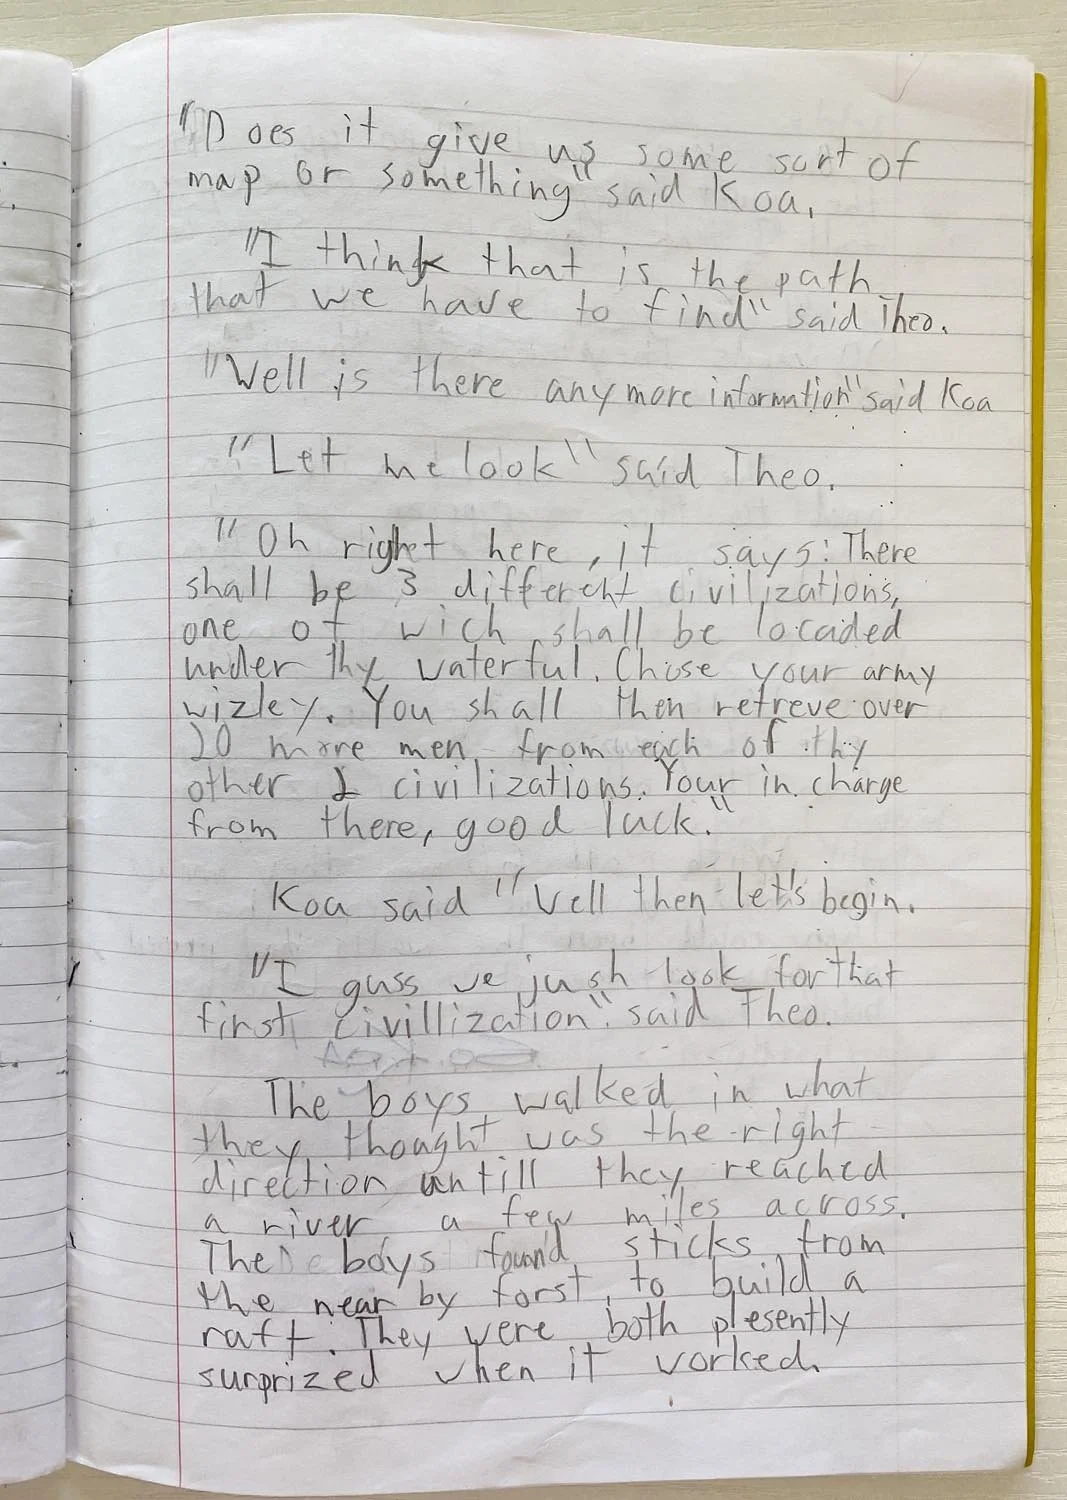 "Does it give us some sort of
map or something" said Koa.
"I think that is the path
that we have to find" said Theo.
"Well is there any more information" said Koa
"Let me look" said Theo.
"Oh right here, it says: There
shall be 3 different civilizations,
one of wich shall be locaded
under thy waterful. Chose your army
wizley. You shall then retreve over
20 more men from each of thy
other 2 civilizations. Your in charge
from there, good luck."
Koa said "Well then let's begin.
"I guss we jush look for that
first civillization". said Theo.
The boys walked in what
they thought was the right
direction untill they reached
a river a few miles across.
The boys found sticks from
the near by forst, to build a
raft. They were both plesently
surprized when it worked.